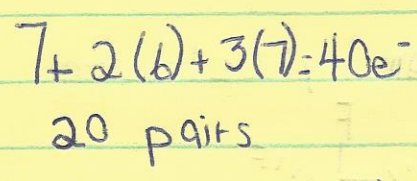 7+ 2(6)+3(7)=40e⁻
20 pairs